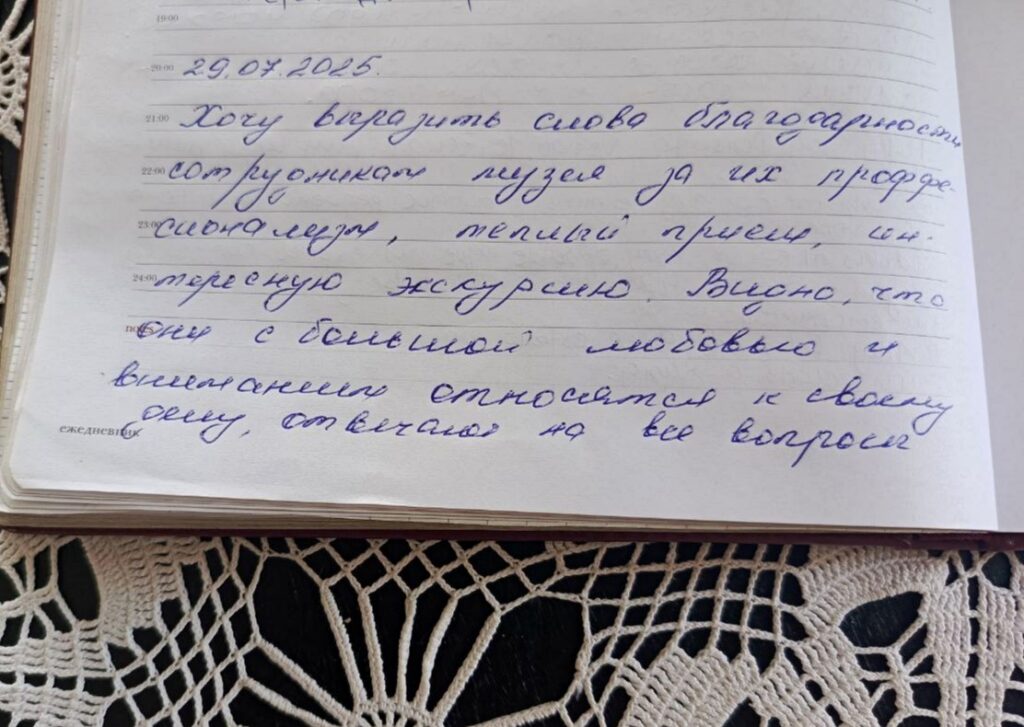 19:00
20:00 29.07.2025.
21:00 Хочу выразить слова благодарности
22:00 сотрудникам музея за их проффе-
23:00 сионализм, теплый прием, ин-
24:00 тересную экскурсию. Видно, что
notes они с большой любовью и
вниманием относятся к своему
делу, отвечают на все вопросы
ежедневник